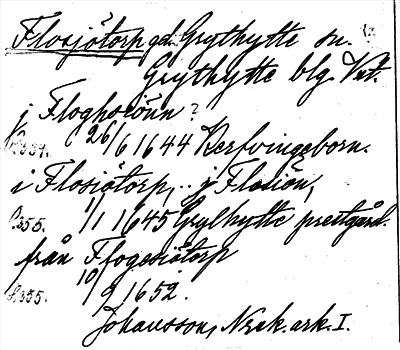 Flosjötorp gd. Grythytte sn.
Grythytte blg. Vst.
j Floghosönn ?
s. 354. 26/6 1644 Kerfvingeborn.
i Flosiötorp, .. j Flosiön,
s. 355. 1/1 1645 Grylhytte prestgård.
från Flogesiötorp
s. 355. 10/9 1652.
Johansson, Nzak. ark. I.